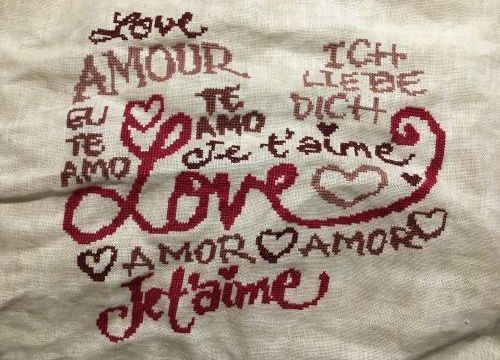 Love
AMOUR
ICH
LIEBE
DICH
EU
TE
AMO
TE
AMO
Je t'aime
Love
AMOR AMOR
Je t'aime